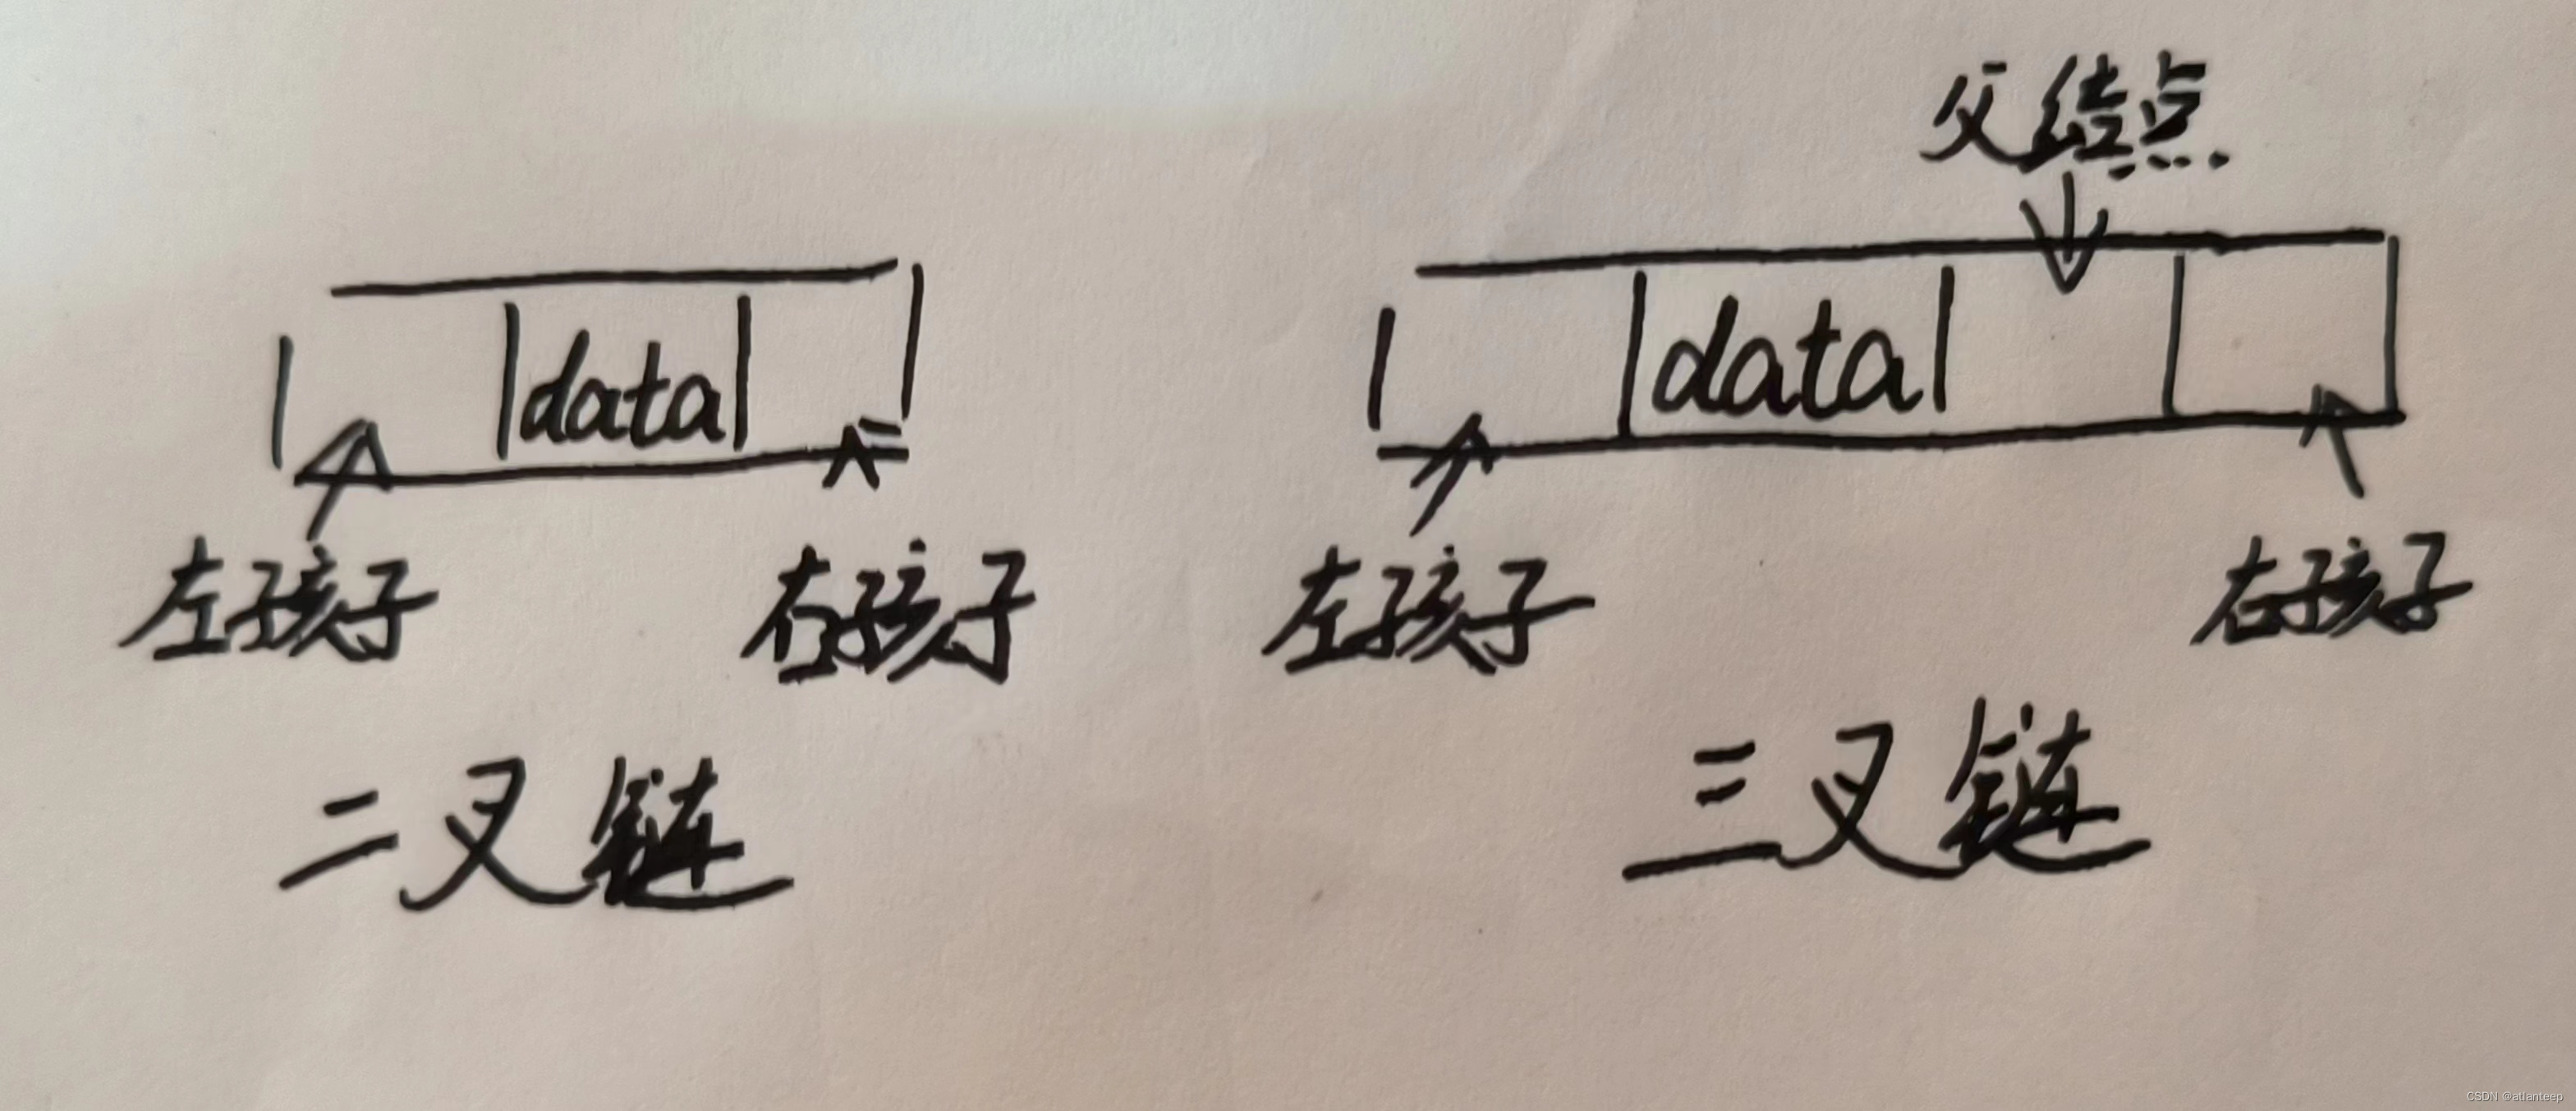 父结点
data
data
左孩子
右孩子
左孩子
右孩子
二叉链
三叉链
CSDN @atlanteep